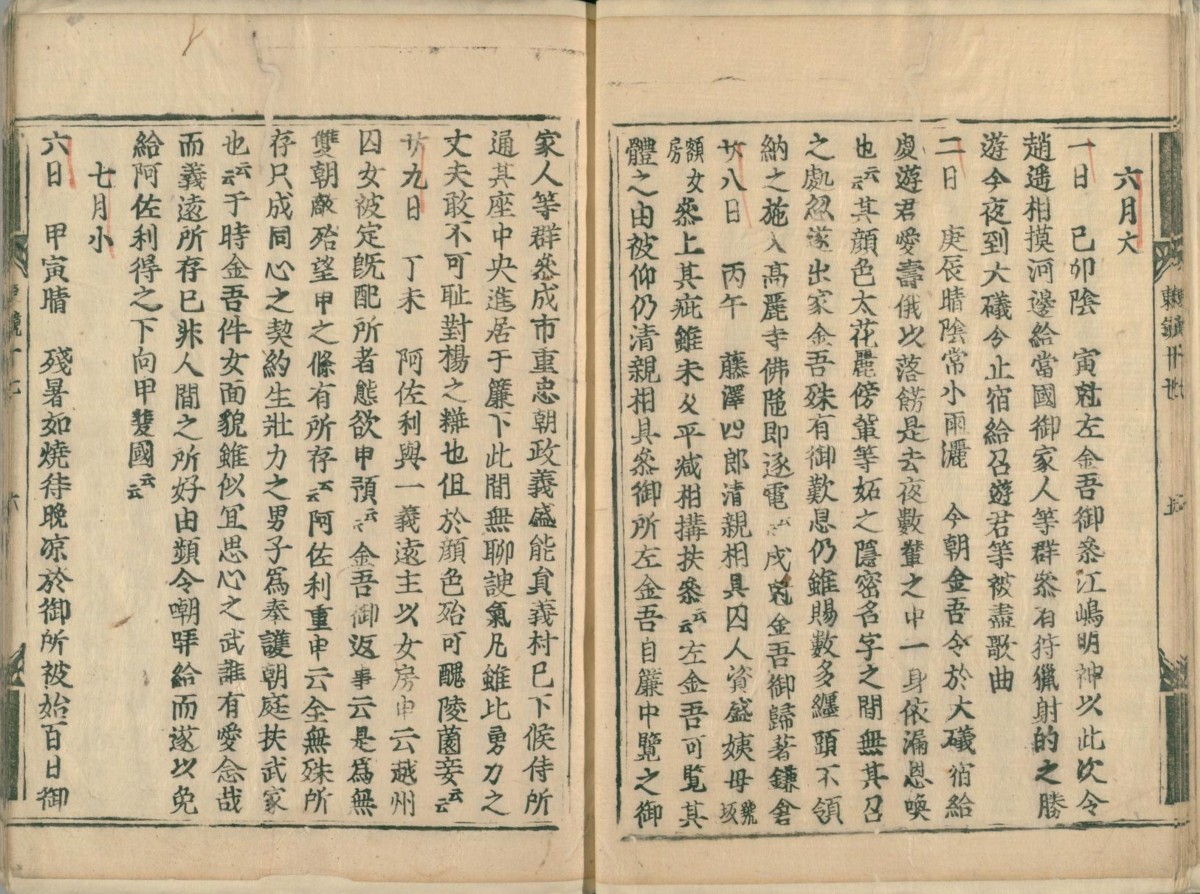 六月大
一日　己卯陰　寅尅左金吾御參江嶋明神以此次令
趙遥相摸河邊給當國御家人等群參有狩獵射的之勝
遊今夜到大礒令止宿給召遊君等被盡歌曲
二日　庚辰晴陰常小雨灑　今朝金吾令於大礒宿給
處遊君愛壽俄以落餝是去夜數輩之中一身依漏恩喚
也云云其顔色太花麗傍輩等妬之隱密名字之間無其召
之處忽遂出家金吾殊有御歎息仍雖賜數多纒頭不領
納之施入髙麗寺佛陁即逐電云云戌尅金吾御歸著鎌倉
廿八日　丙午　藤澤四郎清親相具囚人資盛姨母號坂
額女房參上其疵雖未及平减相搆扶參云云左金吾可覽其
體之由被仰仍清親相具參御所左金吾自簾中覽之御
家人等群參成市重忠朝政義盛能貟義村已下候侍所
通其座中央進居于簾下此間無聊諛氣凡雖比勇力之
丈夫敢不可耻對揚之粧也但於顔色殆可醜陵薗妾云云
廿九日　丁未　阿佐利與一義遠主以女房申云越州
囚女被定旣配所者態欲申預云云金吾御返事云是爲無
雙朝敵殆望申之條有所存云云阿佐利重申云全無殊所
存只成同心之契約生壯力之男子爲奉護朝庭扶武家
也云云于時金吾件女面貌雖似冝思心之武誰有愛念哉
而義遠所存已非人間之所好由頻令嘲哢給而遂以免
給阿佐利得之下向甲斐國云云
七月小
六日　甲寅晴　殘暑如燒待晚凉於御所被始百日御